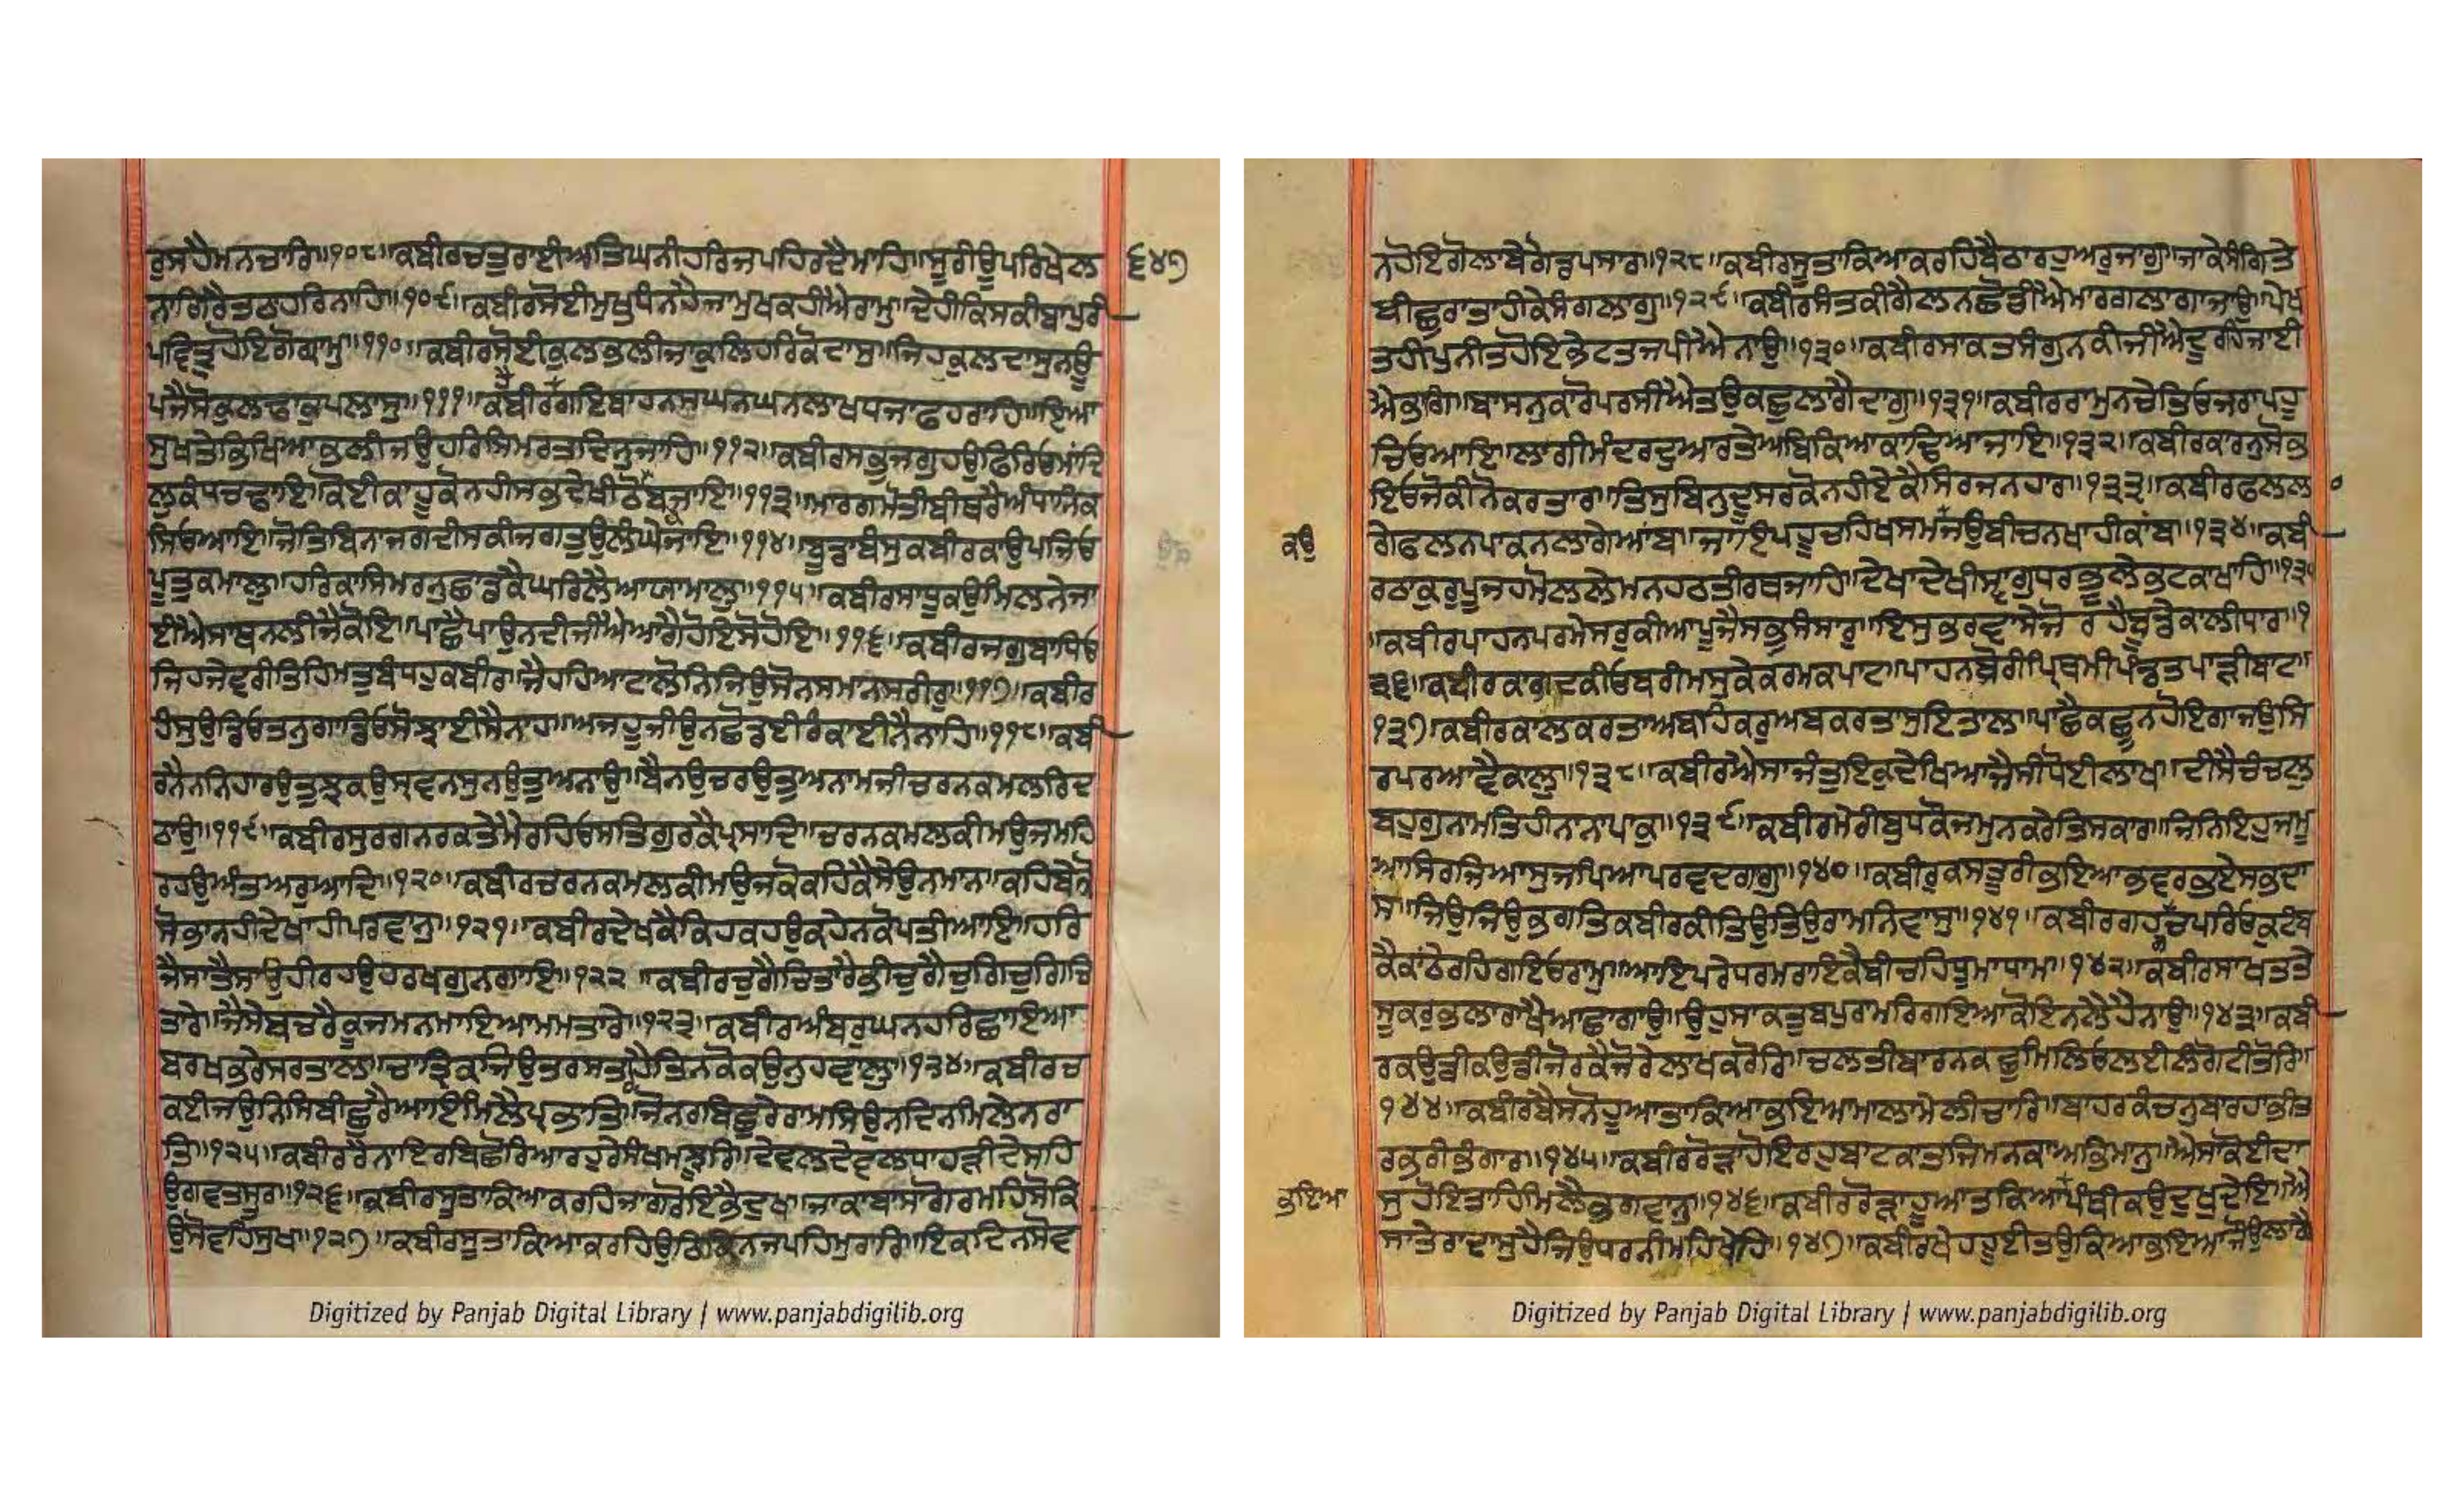 ਰੁਸਹੈਮਨਚਾਰਿ॥੧੦੮॥ਕਬੀਰਚਤੁਰਾਈਅਤਿਘਨੀਹਰਿਜਪਹਿਰਦੈਮਾਹਿ॥ਸੂਰੀਊਪਰਿਖੇਲ
੬੪੭
ਨਾਗਿਰੈਤਠਹਰਿਨਾਹਿ॥੧੦੯॥ਕਬੀਰਸੋਈਮੁਖੁਧੰਨਹੈਜਾਮੁਖਕਹੀਐਰਾਮੁ॥ਦੇਹੀਕਿਸਕੀਬਾਪੁਰੀ
ਪਵਿਤ੍ਰੁਹੋਇਗੋਗ੍ਰਾਮੁ॥੧੧੦॥ਕਬੀਰਸੋਈਕੁਲਭਲੀਜਾਕੁਲਿਹਰਿਕੋਦਾਸੁ॥ਜਿਹਕੁਲਦਾਸੁਨਊ
ਪਜੈਸੋਕੁਲਢਾਕੁਪਲਾਸੁ॥੧੧੧॥ਕਬੀਰਗਇਬਾਹਨਸਘਨਘਨਲਾਖਧਜਾਫਹਰਾਹਿ॥ਇਆ
ਸੁਖਤੇਭਿਖਿਆਭਲੀਜਉਹਰਿਸਿਮਰਤਦਿਨੁਜਾਹਿ॥੧੧੨॥ਕਬੀਰਸਭੁਜਗੁਹਉਫਿਰਿਓਮਾਂਦਿ
ਲੁਕੰਧਚਢਾਇ॥ਕੋਈਕਾਹੂਕੋਨਹੀਸਭਦੇਖੀਠੋਕਬਜਾਇ॥੧੧੩॥ਮਾਰਗਮੋਤੀਬੀਥਰੇਅੰਧਾਨਿਕ
ਸਿਓਆਇ॥ਜੋਤਿਬਿਨਾਜਗਦੀਸਕੀਜਗਤੁਉਲੰਘੇਜਾਇ॥੧੧੪॥ਬੂਡਾਬੰਸੁਕਬੀਰਕਾਉਪਜਿਓ
ਪੂਤੁਕਮਾਲੁ॥ਹਰਿਕਾਸਿਮਰਨੁਛਾਡਕੈਘਰਿਲੈਆਯਾਮਾਲੁ॥੧੧੫॥ਕਬੀਰਸਾਧੂਕਉਮਿਲਨੇਜਾ
ਈਐਸਾਥਨਲੀਜੈਕੋਇ॥ਪਾਛੈਪਾਉਨਦੀਜੀਐਆਗੈਹੋਇਸੋਹੋਇ॥੧੧੬॥ਕਬੀਰਜਗੁਬਾਧਿਓ
ਜਿਹਜੇਵਰੀਤਿਹਿਮਤੁਬੰਧਹੁਕਬੀਰ॥ਜੈਹਹਿਆਟਾਲੋਨਿਜਿਉਸੋਨਸਮਾਨਸਰੀਰੁ॥੧੧੭॥ਕਬੀਰ
ਹੰਸੁਉਡਿਓਤਨੁਗਾਡਿਓਸੋਝਾਈਸੈਨਾਹ॥ਅਜਹੂਜੀਉਨਛੋਡਈਰੰਕਾਈਨੈਨਾਹਿ॥੧੧੮॥ਕਬੀ
ਰਨੈਨਨਿਹਾਰਉਤੁਝਕਉਸ੍ਰਵਨਸੁਨਉਤੁਅਨਾਉ॥ਬੈਨਉਚਰਉਤੁਅਨਾਮਜੀਚਰਨਕਮਲਰਿਦ
ਠਾਉ॥੧੧੯॥ਕਬੀਰਸੁਰਗਨਰਕਤੇਮੈਰਹਿਓਸਤਿਗੁਰਕੈਪ੍ਰਸਾਦਿ॥ਚਰਨਕਮਲਕੀਮਉਜਮਹਿ
ਰਹਉਅੰਤਅਰੁਆਦਿ॥੧੨੦॥ਕਬੀਰਚਰਨਕਮਲਕੀਮਉਜਕੋਕਹਿਕੈਸੇਉਨਮਾਨ॥ਕਹਿਬੇਕੋ
ਸੋਭਾਨਹੀਦੇਖਾਹੀਪਰਵਾਨੁ॥੧੨੧॥ਕਬੀਰਦੇਖਕੈਕਿਹਕਹਉਕਹੇਨਕੋਪਤੀਆਇ॥ਹਰਿ
ਜੈਸਾਤੈਸਾਉਹੀਰਹਉਹਰਖਗੁਨਗਾਇ॥੧੨੨॥ਕਬੀਰਚੁਗੈਚਿਤਾਰੈਭੀਚੁਗੈਚੁਗਿਚੁਗਿਚਿ
ਤਾਰੇ॥ਜੈਸੇਬਚਰੈਕੂਜਮਨਮਾਇਆਮਮਤਾਰੇ॥੧੨੩॥ਕਬੀਰਅੰਬਰੁਘਨਹਰਿਛਾਇਆ
ਬਰਖਭਰੇਸਰਤਾਲ॥ਚਾਤ੍ਰਿਕਜਿਉਤਰਸਤਹੈਤਿਨਕੋਕਉਨੁਹਵਾਲੁ॥੧੨੪॥ਕਬੀਰਚ
ਕਈਜਉਨਿਸਿਬੀਛੁਰੈਆਇਮਿਲੈਪ੍ਰਭਾਤਿ॥ਜੋਨਰਬਿਛੁਰੇਰਾਮਸਿਉਨਦਿਨਮਿਲੇਨਰਾ
ਤਿ॥੧੨੫॥ਕਬੀਰਰੈਨਾਇਰਬਿਛੋਰਿਆਰਹੁਰੇਸੰਖਮਝੂਰਿ॥ਦੇਵਲਦੇਵਲਧਾਹੜੀਦੇਸਹਿ
ਉਗਵਤਸੂਰ॥੧੨੬॥ਕਬੀਰਸੂਤਾਕਿਆਕਰਹਿਜਾਗਰੋਇਭੈਦੁਖ॥ਜਾਕਾਬਾਸਾਗੋਰਮਹਿਸੋਕਿ
ਉਸੋਵਹਿਸੁਖ॥੧੨੭॥ਕਬੀਰਸੂਤਾਕਿਆਕਰਹਿਉਠਿਕਿਨਜਪਹਿਮੁਰਾਰਿ॥ਇਕਦਿਨਸੋਵ
Digitized by Panjab Digital Library | www.panjabdigilib.org
ਨਹੋਇਗੋਲਾਂਬੇਗੋਡਪਸਾਰ॥੧੨੮॥ਕਬੀਰਸੂਤਾਕਿਆਕਰਹਿਬੈਠਾਰਹੁਅਰੁਜਾਗੁ॥ਜਾਕੇਸੰਗਿਤੇ
ਬੀਛੁਰਾਤਾਹੀਕੇਸੰਗਲਾਗੁ॥੧੨੯॥ਕਬੀਰਸੰਤਕੀਗੈਲਨਛੋਡੀਐਮਾਰਗਲਾਗਾਜਾਉ॥ਪੇਖ
ਤਹੀਪੁਨੀਤਹੋਇਭੇਟਤਜਪੀਐਨਾਉ॥੧੩੦॥ਕਬੀਰਸਾਕਤਸੰਗੁਨਕੀਜੀਐਦੂਰਹਿਜਾਈ
ਐਭਾਗਿ॥ਬਾਸਨੁਕਾਰੋਪਰਸੀਐਤਉਕਛੁਲਾਗੈਦਾਗੁ॥੧੩੧॥ਕਬੀਰਰਾਮੁਨਚੇਤਿਓਜਰਾਪਹੂ
ਚਿਓਆਇ॥ਲਾਗੀਮੰਦਰਦੁਆਰਤੇਅਬਿਕਿਆਕਾਢਿਆਜਾਇ॥੧੩੨॥ਕਬੀਰਕਾਰਨੁਸੋਭ
ਇਓਜੋਕੀਨੋਕਰਤਾਰ॥ਤਿਸੁਬਿਨੁਦੂਸਰਕੋਨਹੀਏਕੈਸਿਰਜਨਹਾਰ॥੧੩੩॥ਕਬੀਰਫਲਲ
ਕਉ
ਗੇਫਲਨਪਾਕਨਲਾਗੇਆਂਬ॥ਜਾਇਪਹੂਚਹਿਖਸਮਜਉਬੀਚਨਖਾਹੀਕਾਂਬ॥੧੩੪॥ਕਬੀ
ਰਠਾਕੁਰੁਪੂਜਹਮੋਲਲੇਮਨਹਠਤੀਰਥਜਾਹਿ॥ਦੇਖਾਦੇਖੀਸ੍ਵਾਂਗੁਧਰਭੂਲੇਭਟਕਾਖਾਹਿ॥੧੩੫
॥ਕਬੀਰਪਾਹਨਪਰਮੇਸਰੁਕੀਆਪੂਜੈਸਭੁਸੰਸਾਰੁ॥ਇਸੁਭਰਵਾਸੇਜੋਰਹੈਬੂਡੇਕਾਲੀਧਾਰ॥੧
੩੬॥ਕਬੀਰਕਾਗਦਕੀਓਬਰੀਮਸੁਕੇਕਰਮਕਪਾਟ॥ਪਾਹਨਬੋਰੀਪਿ੍ਥਮੀਪੰਡਤਪਾੜੀਬਾਟ॥
੧੩੭॥ਕਬੀਰਕਾਲਕਰਤਾਅਬਹਿਕਰੁਅਬਕਰਤਾਸੁਇਤਾਲ॥ਪਾਛੈਕਛੂਨਹੋਇਗਾਜਉਸਿ
ਰਪਰਆਵੈਕਾਲੁ॥੧੩੮॥ਕਬੀਰਐਸਾਜੰਤੁਇਕੁਦੇਖਿਆਜੈਸੀਧੋਈਲਾਖ॥ਦੀਸੈਚੰਚਲੁ
ਬਹੁਗੁਨਾਮਤਿਹੀਨਾਨਾਪਾਕੁ॥੧੩੯॥ਕਬੀਰਮੇਰੀਬੁਧਕੋਜਮੁਨਕਰੇਤਿਸਕਾਰ॥ਜਿਨਿਇਹੁਜਮੂ
ਆਸਿਰਜਿਆਸੁਜਪਿਆਪਰਵਦਗਾਰੁ॥੧੪੦॥ਕਬੀਰੁਕਸਤੂਰੀਭਇਆਭਵਰਭਏਸਭਦਾ
ਸ॥ਜਿਉਜਿਉਭਗਤਿਕਬੀਰਕੀਤਿਉਤਿਉਰਾਮਨਿਵਾਸੁ॥੧੪੧॥ਕਬੀਰਗਹਗਚਪਰਿਓਕੁਟੰਬ
ਕੈਕਾਂਠੇਰਹਿਗਇਓਰਾਮੁ॥ਆਇਪਰੇਧਰਮਰਾਇਕੇਬੀਚਹਿਧੂਮਾਧਾਮ॥੧੪੨॥ਕਬੀਰਸਾਖਤਤੇ
ਸੂਕਰੁਭਲਾਰਾਖੈਆਛਾਗਾਉ॥ਉਹੁਸਾਕਤੁਬਪੁਰਾਮਰਿਗਇਆਕੋਇਨਲੈਹੈਨਾਉ॥੧੪੩॥ਕਬੀ
ਰਕਉਡੀਕਉਡੀਜੋਰਕੈਜੋਰੇਲਾਖਕਰੋਰਿ॥ਚਲਤੀਬਾਰਨਕਛੁਮਿਲਿਓਲਈਲੰਗੋਟੀਤੋਰਿ॥
੧੪੪॥ਕਬੀਰਬੈਸਨੋਹੂਆਤਾਕਿਆਭਇਆਮਾਲਾਮੇਲੀਚਾਰਿ॥ਬਾਹਰਕੰਚਨੁਬਾਰਹਾਭੀਤ
ਰਭਰੀਭੰਗਾਰ॥੧੪੫॥ਕਬੀਰਰੋੜਾਹੋਇਰਹੁਬਾਟਕਾਤਜਿਮਨਕਾਅਭਿਮਾਨੁ॥ਐਸਾਕੋਈਦਾ
ਭਇਆ
ਸੁਹੋਇਤਾਹਿਮਿਲੈਭਗਵਾਨੁ॥੧੪੬॥ਕਬੀਰਰੋੜਾਹੂਆਤਕਿਆਪੰਥੀਕਉਦੁਖੁਦੇਇ॥ਐ
ਸਾਤੇਰਾਦਾਸੁਹੈਜਿਉਧਰਨੀਮਹਿਖੇਹਿ॥੧੪੭॥ਕਬੀਰਖੇਹਹੂਈਤਉਕਿਆਭਇਆਜੋਉਲਾਗੈ
Digitized by Panjab Digital Library | www.panjabdigilib.org